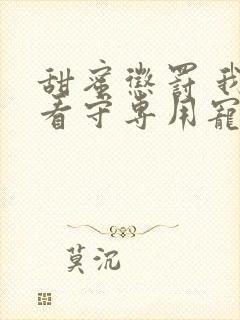 甜蜜懲罰 我
看守専用寵
莫沉